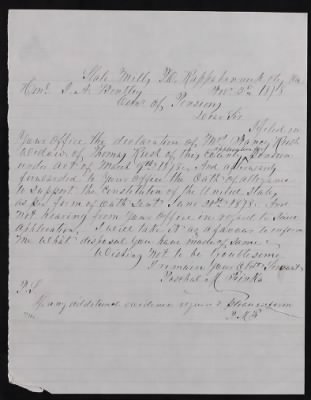 Slate Mills P.O. Rappahannock Cty Va
Nov 2nd 1878
Hon. J. A. Bentley
Com. of Pensions
Dear Sir
I filed in
Your Office the declaration of Mrs. Nancy
widow of Thomas for Pension
under act of March 9th 1878. And afterwards
forwarded to Your Office the Oath of Allegiance
to support the Constitution of the United States
as per form of Oath Sent June 1878. And
not hearing from your Office in regard to Said
application. I will take it as a favour to inform
me what disposal you have made of Same
Wishing not to be troublesome
I remain Your Obt. Servant
Paschal M.
P.S.
If any additional evidence required Please inform
me. P.M.F